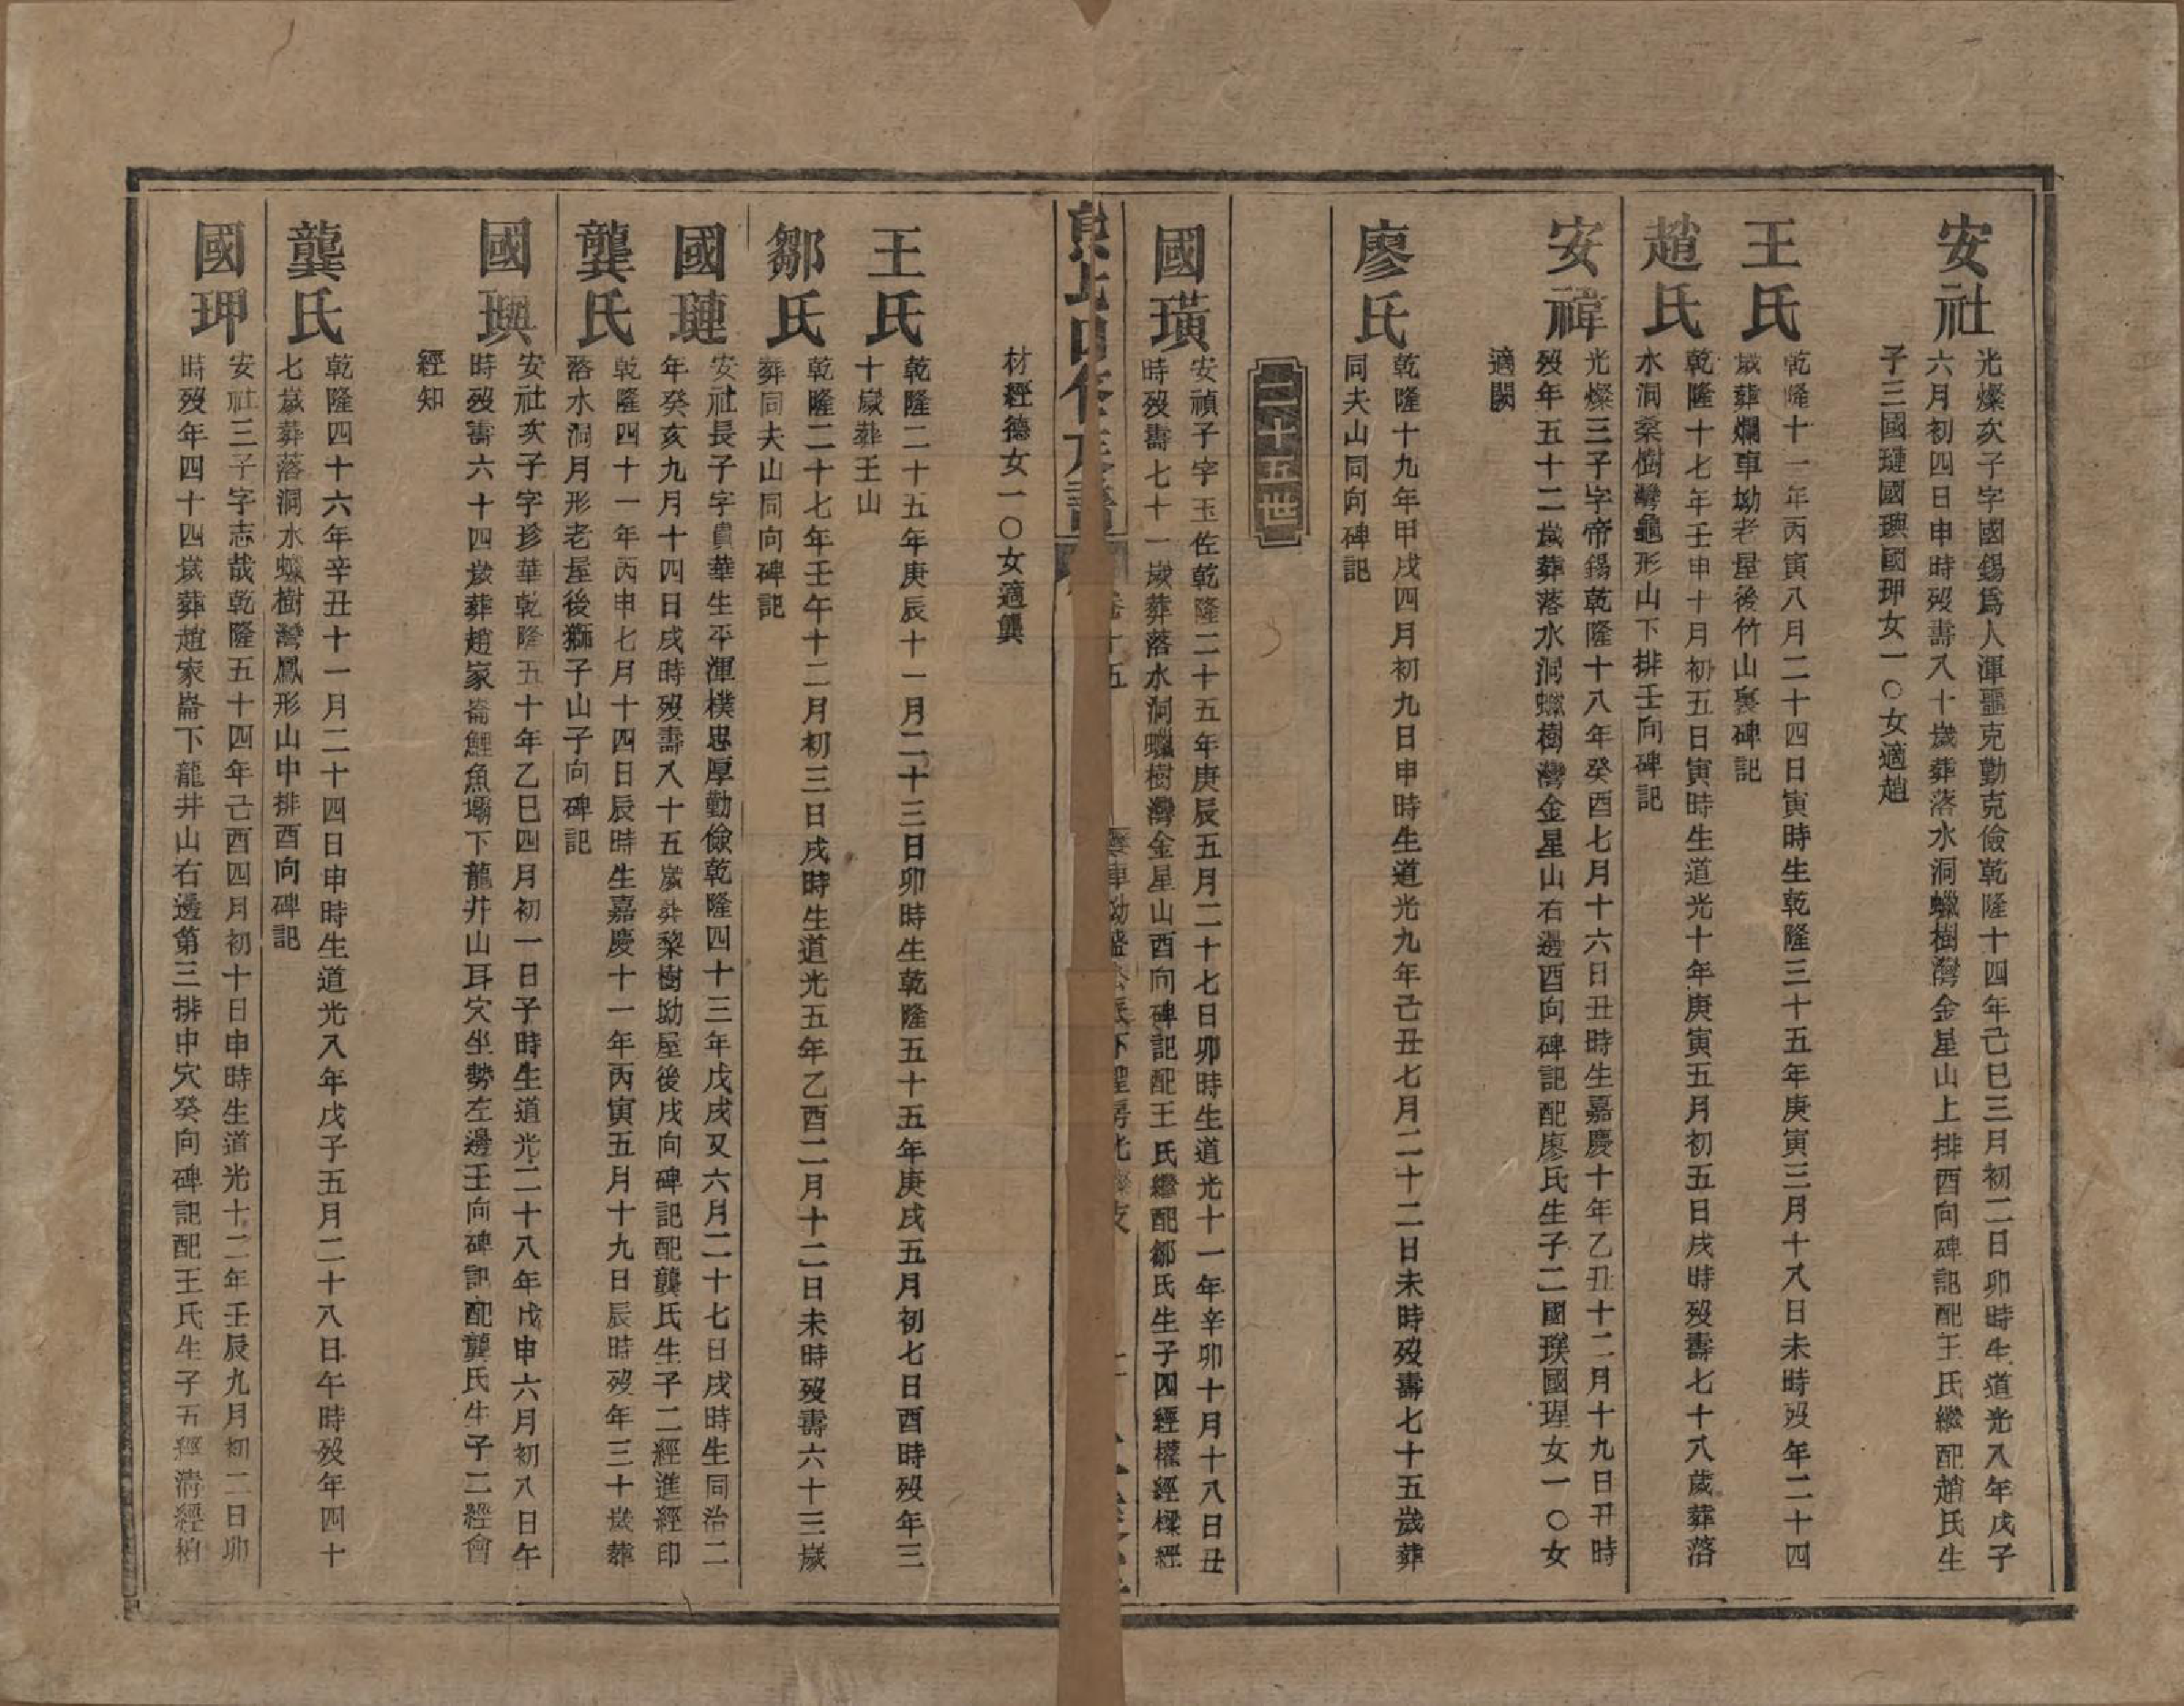 安社
光燦次子字國錫爲人渾噩克勤克儉乾隆十四年己巳三月初二日卯時生道光八年戊子
六月初四日申時歿壽八十歲葬落水洞蠟樹灣金星山上排酉向碑記配王氏繼配趙氏生
子三國璉國璵國玾女一〇女適趙
王氏
乾隆十一年丙寅八月二十四日寅時生乾隆三十五年庚寅三月十八日未時歿年二十四
歲葬爛車坳老屋後竹山裏碑記
趙氏
乾隆十七年壬申十月初五日寅時生道光十年庚寅五月初五日戌時歿壽七十八歲葬落
水洞桑樹灣龜形山下排壬向碑記
安禕
光燦三子字帝錫乾隆十八年癸酉七月十六日丑時生嘉慶十年乙丑十二月十九日丑時
歿年五十二歲葬落水洞蠟樹灣金星山右邊酉向碑記配廖氏生子二國璞國瑆女一〇女
適閔
廖氏
乾隆十九年甲戌四月初九日申時生道光九年己丑七月二十二日未時歿壽七十五歲葬
同夫山同向碑記
二十五世
國璜
安禎子字玉佐乾隆二十五年庚辰五月二十七日卯時生道光十一年辛卯十月十八日丑
時歿壽七十一歲葬落水洞蠟樹灣金星山酉向碑記配王氏繼配鄒氏生子四經權經樑經
卷十五
材經德女一〇女適龔
王氏
乾隆二十五年庚辰十一月二十三日卯時生乾隆五十五年庚戌五月初七日酉時歿年三
十歲葬王山
鄒氏
乾隆二十七年壬午十二月初三日戌時生道光五年乙酉二月十二日未時歿壽六十三歲
葬同夫山同向碑記
國璉
安社長子字貴華生平渾樸忠厚勤儉乾隆四十三年戊戌又六月二十七日戌時生同治二
年癸亥九月十四日戌時歿壽八十五歲葬黎樹坳屋後戌向碑記配龔氏生子二經進經印
龔氏
乾隆四十一年丙申七月十四日辰時生嘉慶十一年丙寅五月十九日辰時歿年三十歲葬
落水洞月形老屋後獅子山子向碑記
國璵
安社次子字珍華乾隆五十年乙巳四月初一日子時生道光二十八年戊申六月初八日午
時歿壽六十四歲葬趙家崙鯉魚壩下龍井山耳穴坐勢左邊壬向碑記配龔氏生子二經會
經知
龔氏
乾隆四十六年辛丑十一月二十四日申時生道光八年戊子五月二十八日午時歿年四十
七歲葬落洞水蠟樹灣鳳形山中排酉向碑記
國玾
安社三子字志哉乾隆五十四年己酉四月初十日申時生道光十二年壬辰九月初二日卯
時歿年四十四歲葬趙家崙下龍井山右邊第三排中穴癸向碑記配王氏生子五經清經柏